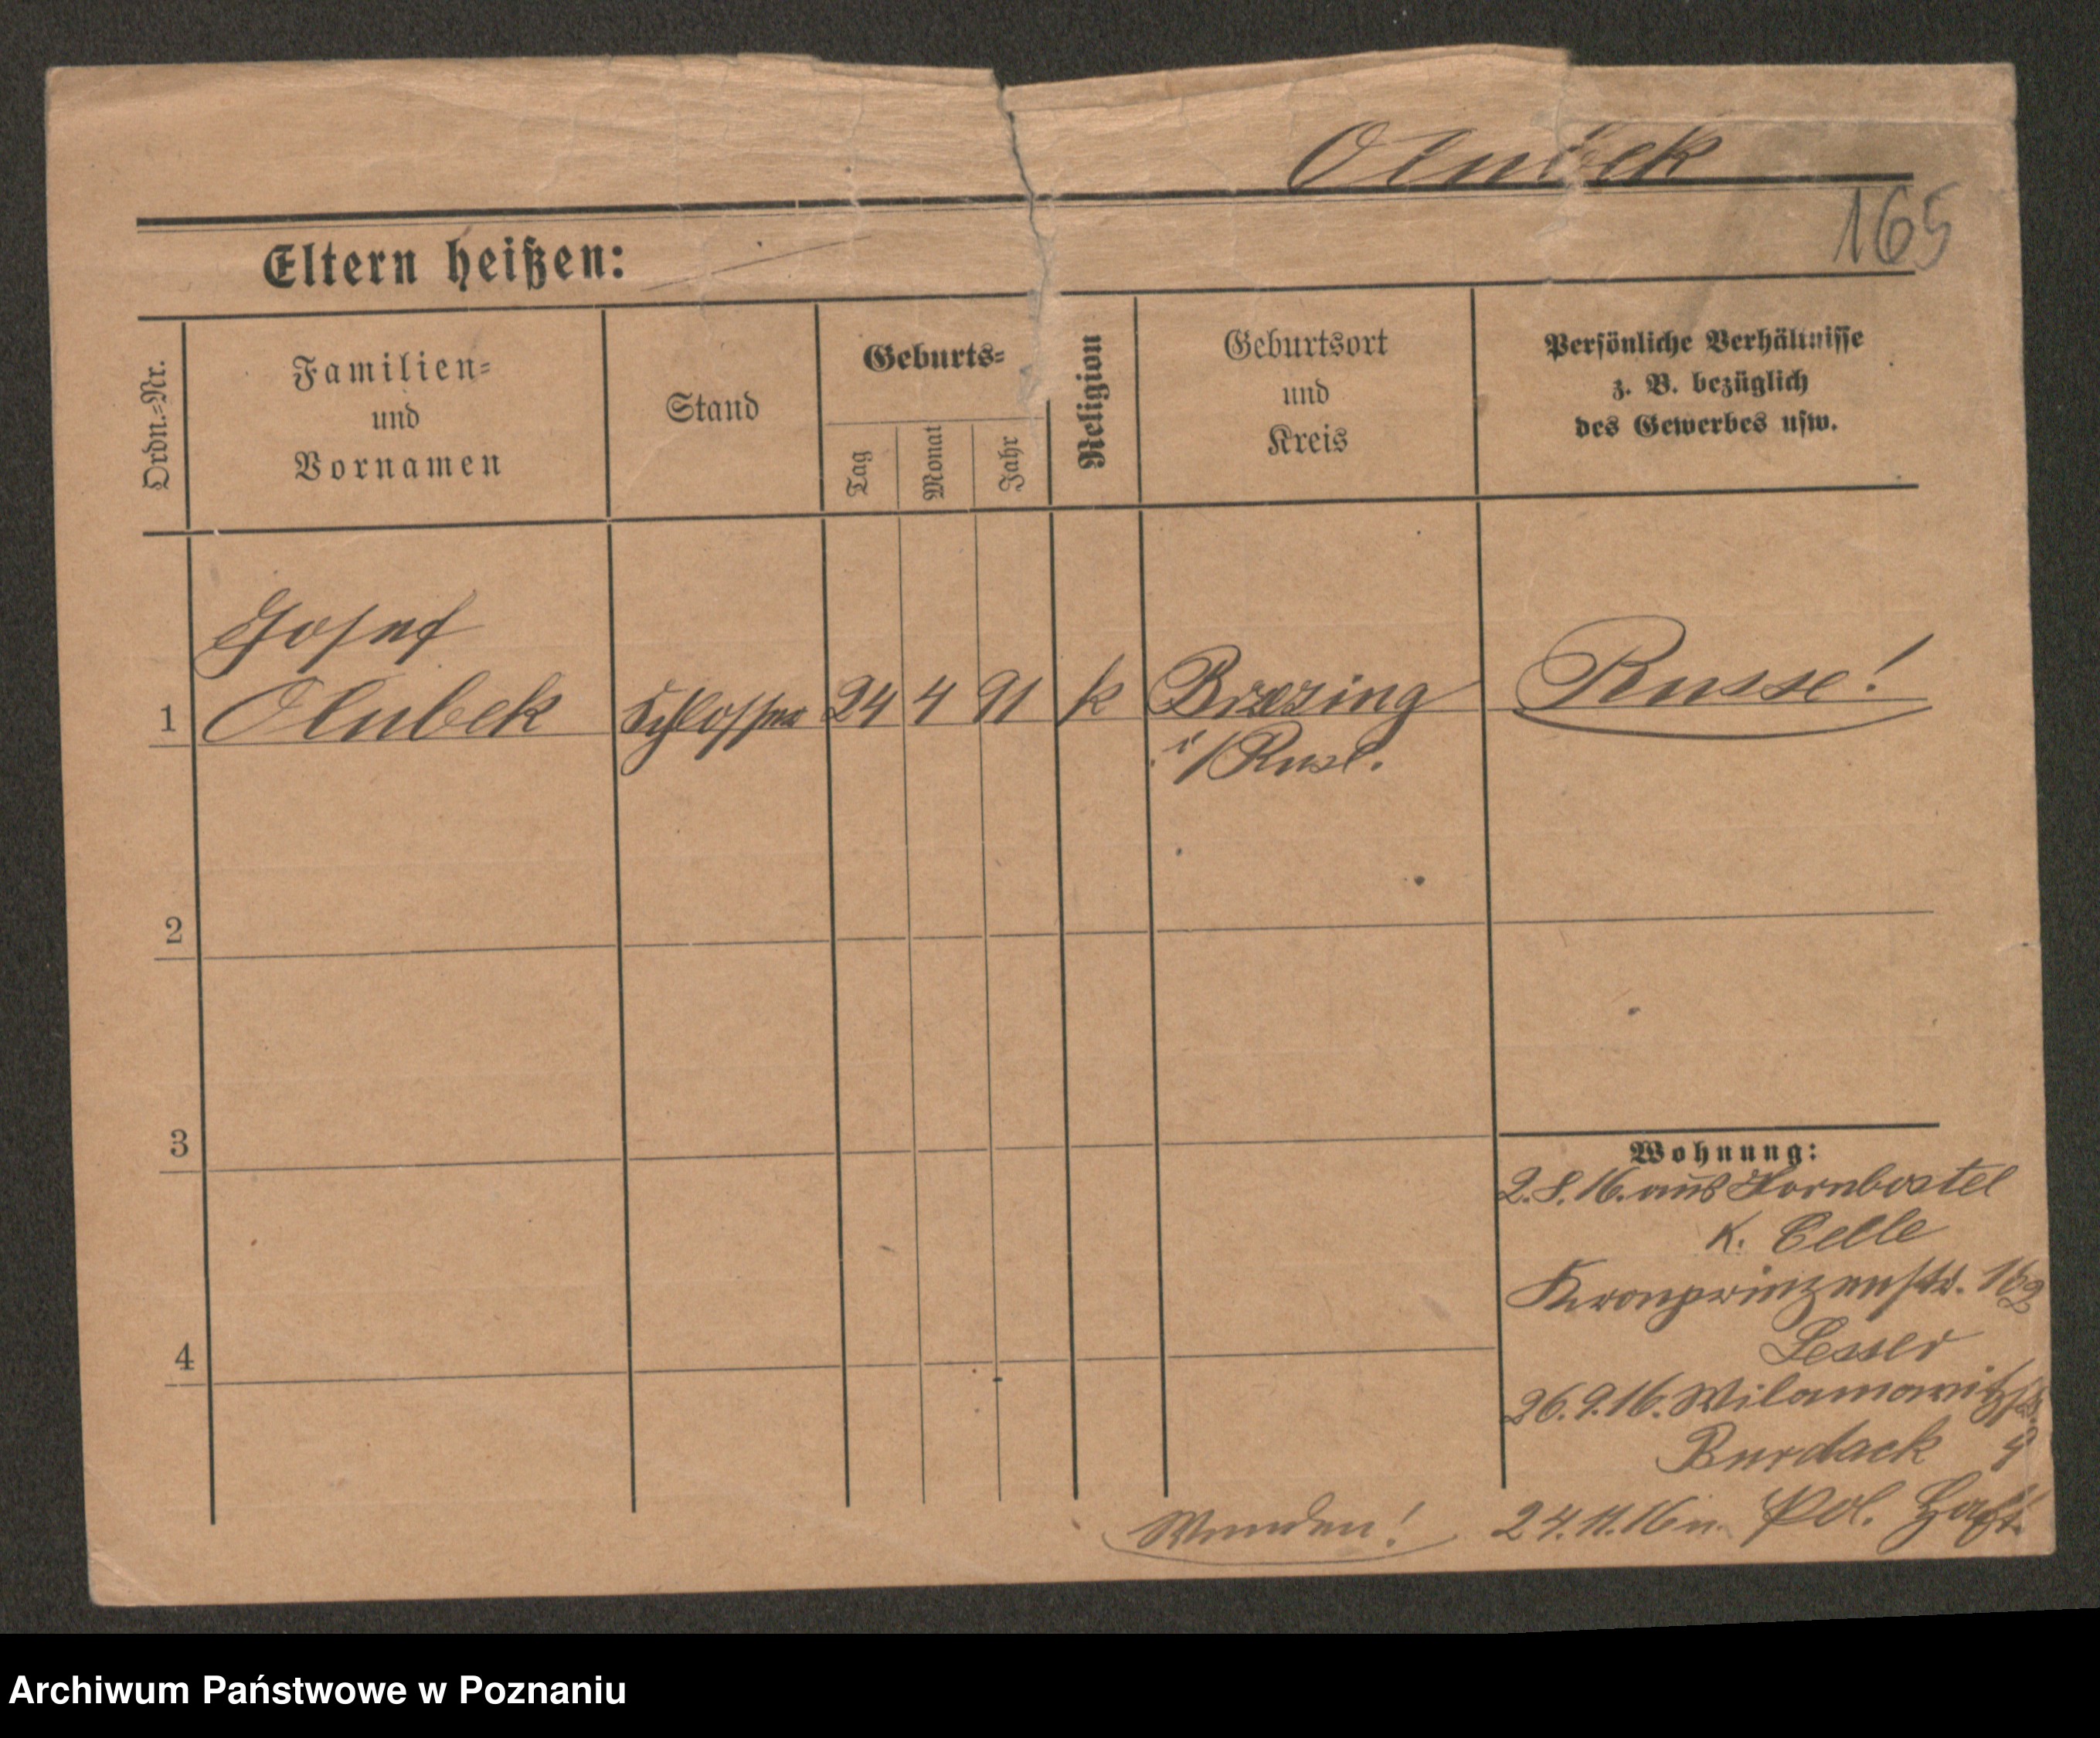 Olubek
165
Eltern heißen:
Ordn.-Nr.
Familien-
und
Vornamen
Stand
Geburts-
Tag
Monat
Jahr
Religion
Geburtsort
und
Kreis
Persönliche Verhältnisse
z. B. bezüglich
des Gewerbes usw.
Josef
1 Olubek Schlosser 24 4 91 k Brzezing Russe!
i/Rusl.
2
3
4
Wohnung:
2.8.16. aus Hornbostel
K. Celle
Kronprinzenstr.
Lesser
26.9.16. Wilamowitzstr.
Burdack 4
24.11.16 n. Pol. Haft.
Wenden!
Archiwum Państwowe w Poznaniu